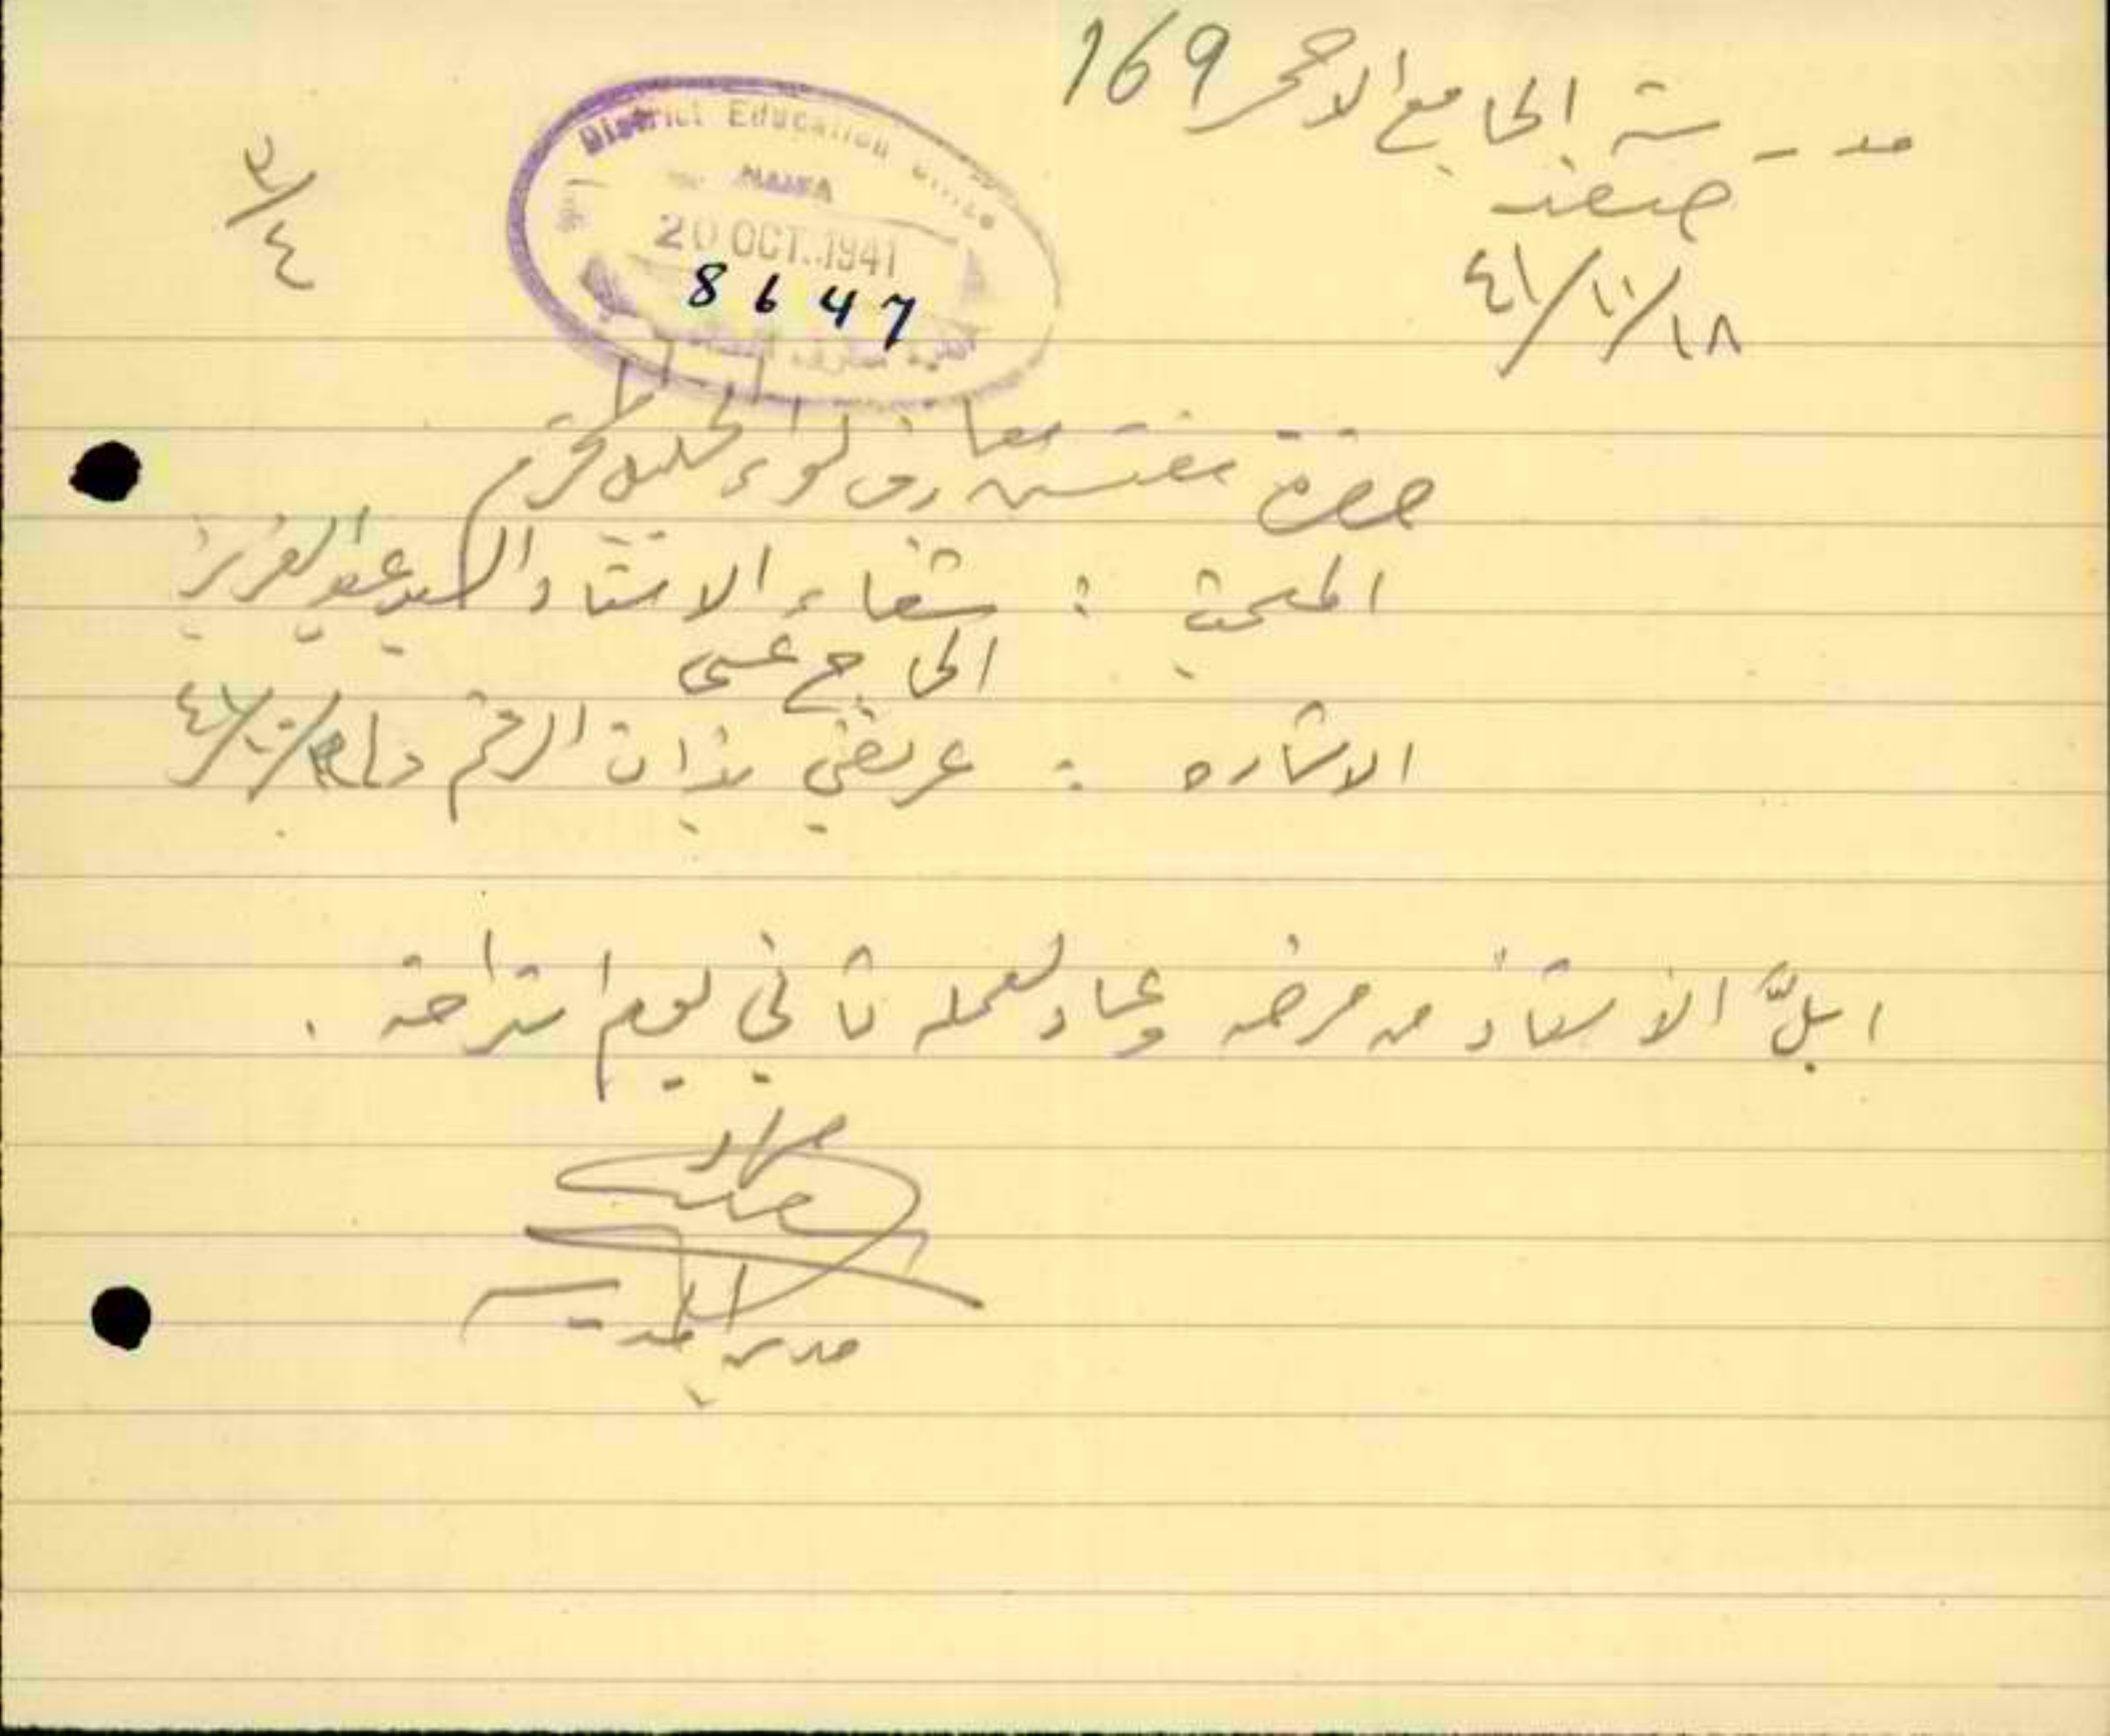 مدرسة الجامع الاحمر 169
صفد
٤١/١٠/١٨
٢/٤
District Education Office
HAIFA
20 OCT. 1941
8647
حضرة مفتش معارف لواء الجليل المحترم
المبحث : شفاء الاستاذ السيد عبد العزيز
الحاج عيسى
الاشاره : عريضتي بذات الرقم
ابلَّ الاستاذ من مرضه وعاد لعمله ثاني يوم استراحته .
مدير المدرسة